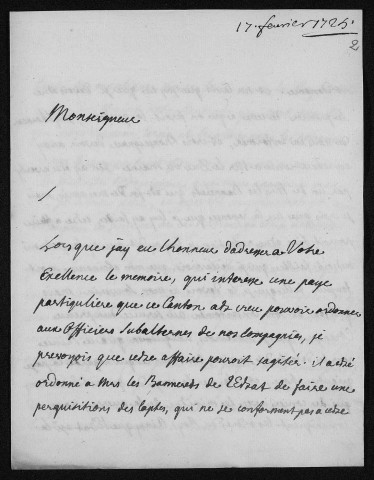 17. fevrier 1725.
2
Monseigneur
Lorsque jay eu lhonneur dadresser a Votre
Excellence le memoire, qui interesse une paye
partiguliere que ce Canton a creu pouvoir ordonner
aux Officiers Subalternes de nos Compagnies, je
prevoyois que cette affaire pouroit sagiter. il a esté
ordonné a Mrs les Bannerets de l'Estat de faire une
perquisitions des Captes, qui ne se conforment pas a cette